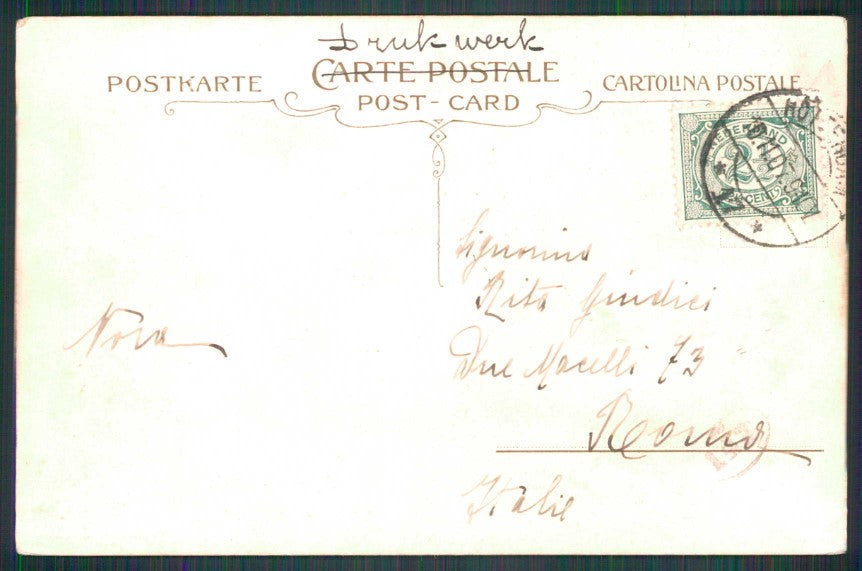 Drukwerk
POSTKARTE
CARTE POSTALE
CARTOLINA POSTALE
POST-CARD
NEDERLAND
CENT
Signorina
Rita Giudici
Due Macelli 73
Roma
Italie
Nora